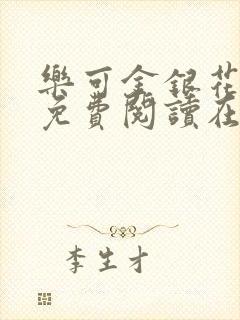 樂可金銀花
免費閱讀在
李生才